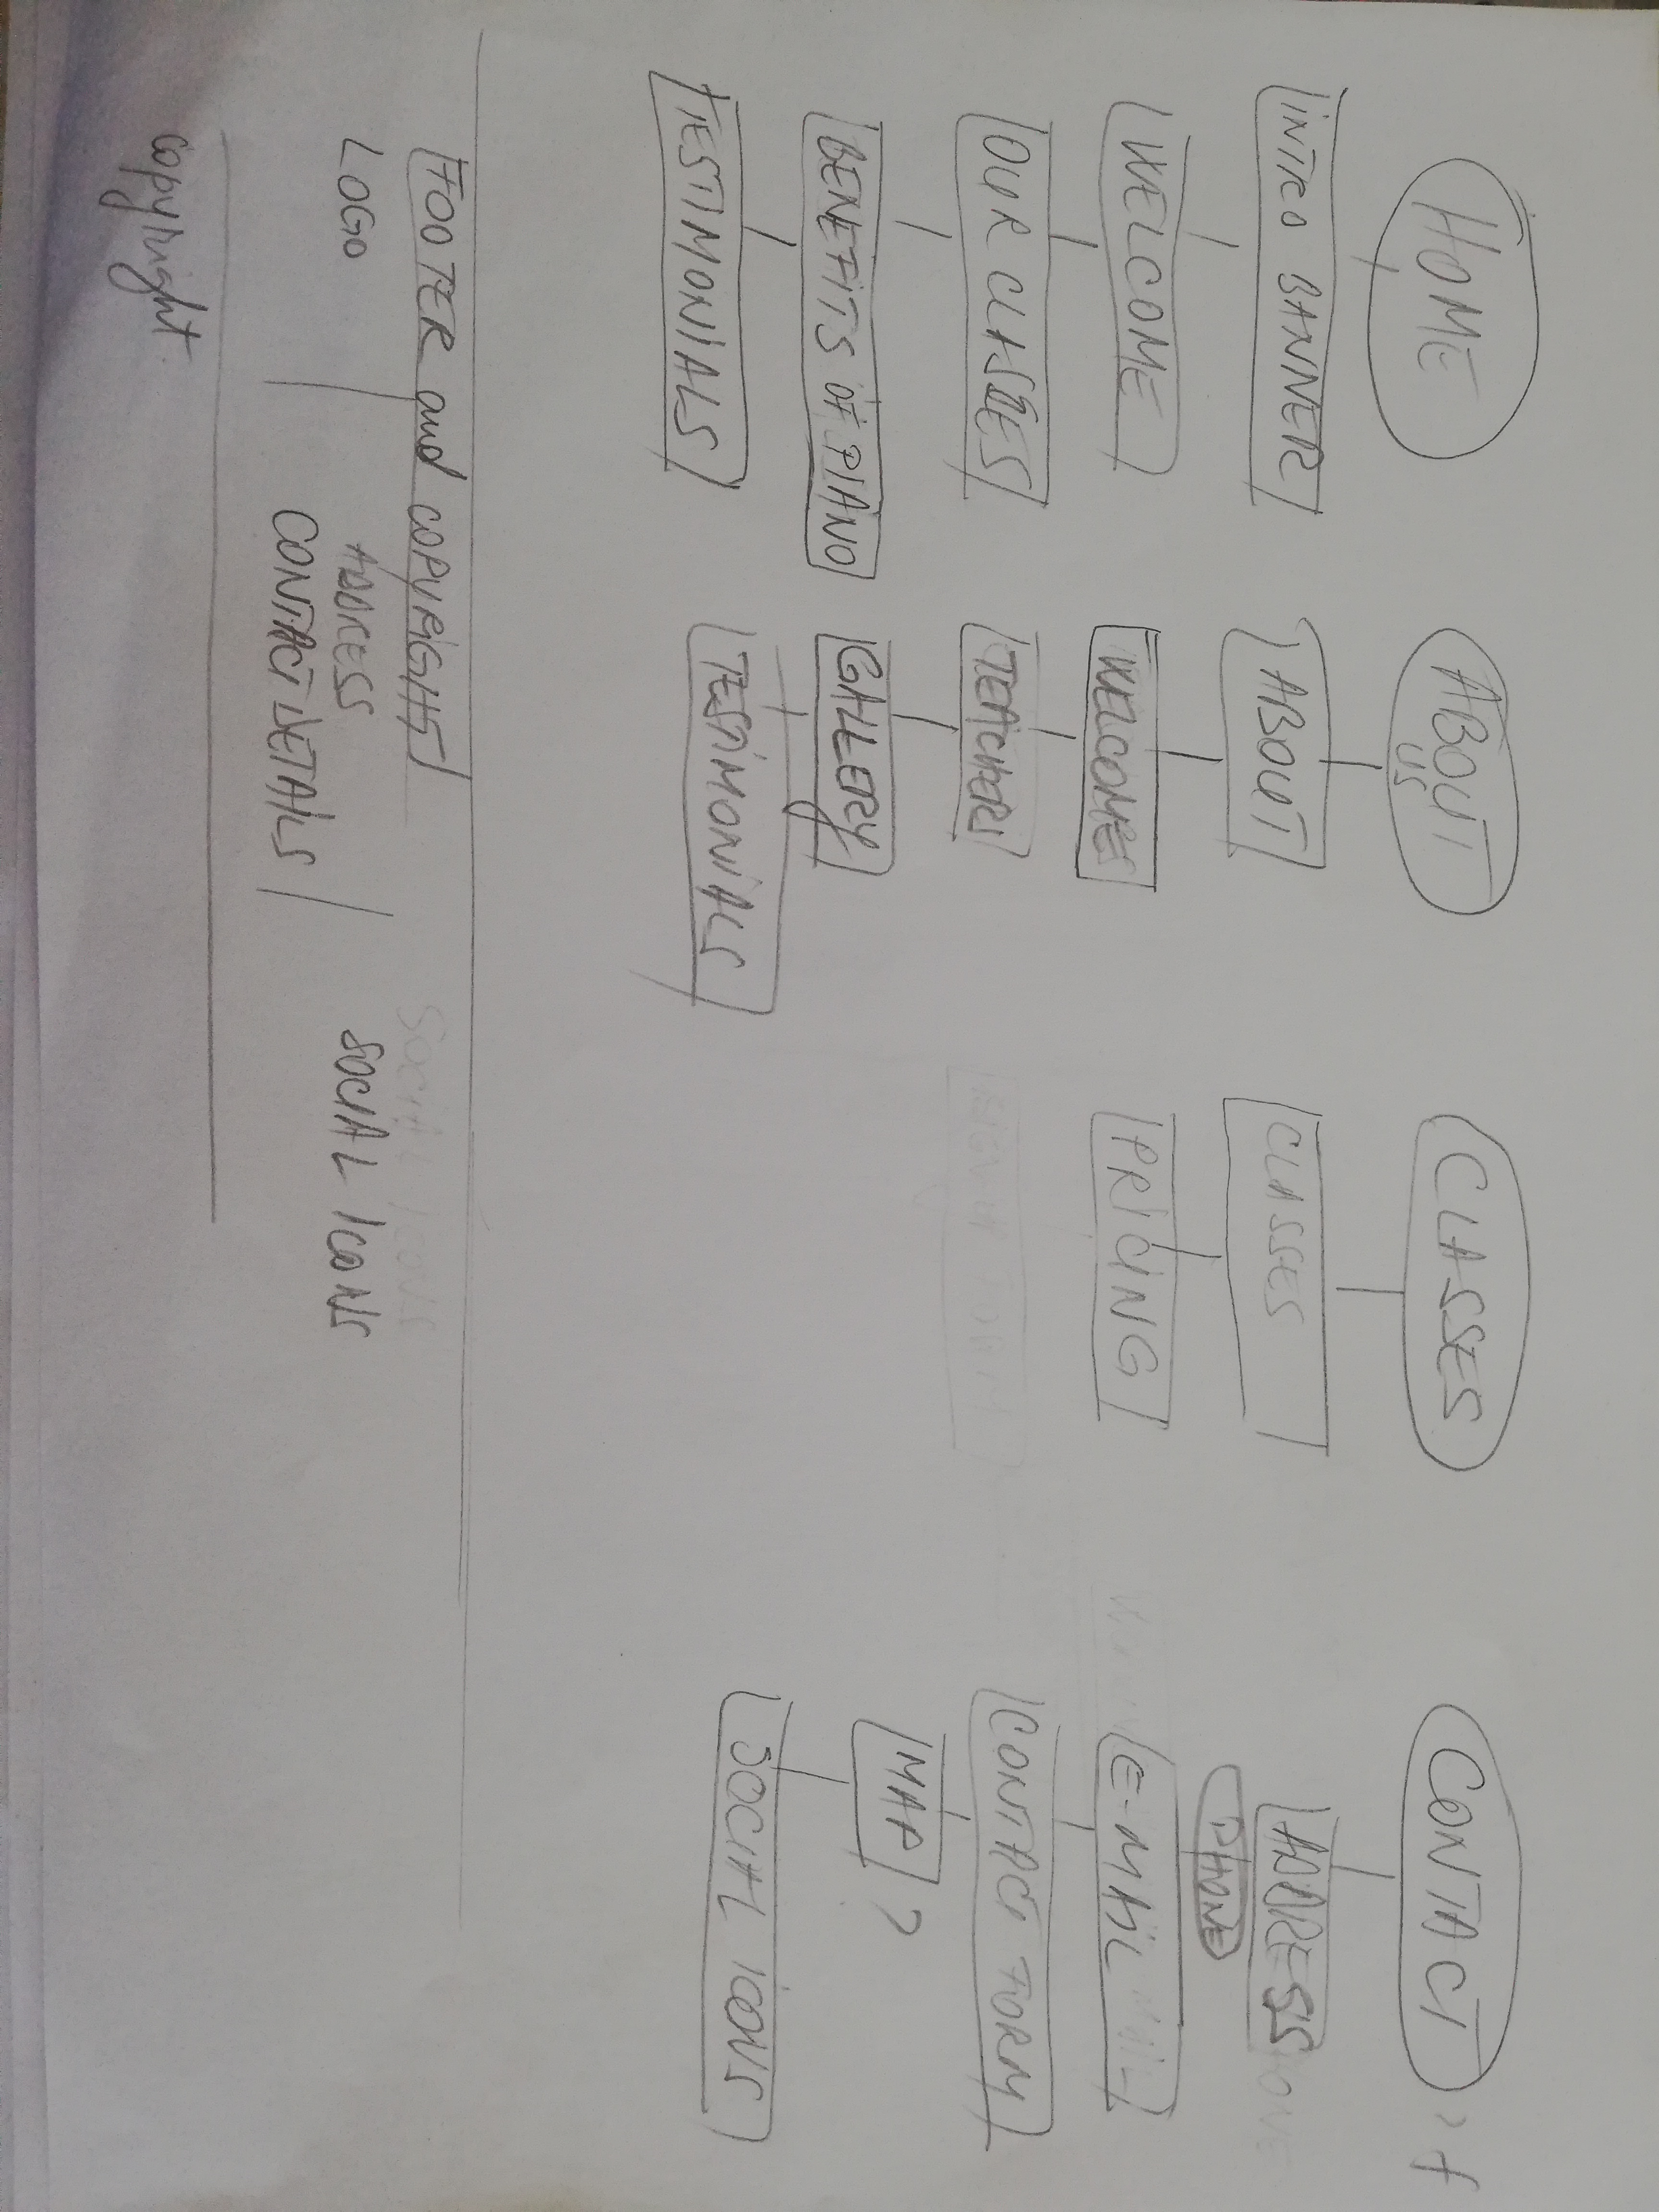 HOME
INTRO BANNER
WELCOME
OUR CLASSES
BENEFITS OF PIANO
TESTIMONIALS
ABOUT
US
ABOUT
WELCOME
TEACHERS
GALLERY
TESTIMONIALS
CLASSES
CLASSES
PRICING
CONTACT
ADDRESS
PHONE
E-MAIL
CONTACT FORM
MAP ?
SOCIAL ICONS
FOOTER and COPYRIGHTS
LOGO
ADDRESS
CONTACT DETAILS
SOCIAL ICONS
copyright